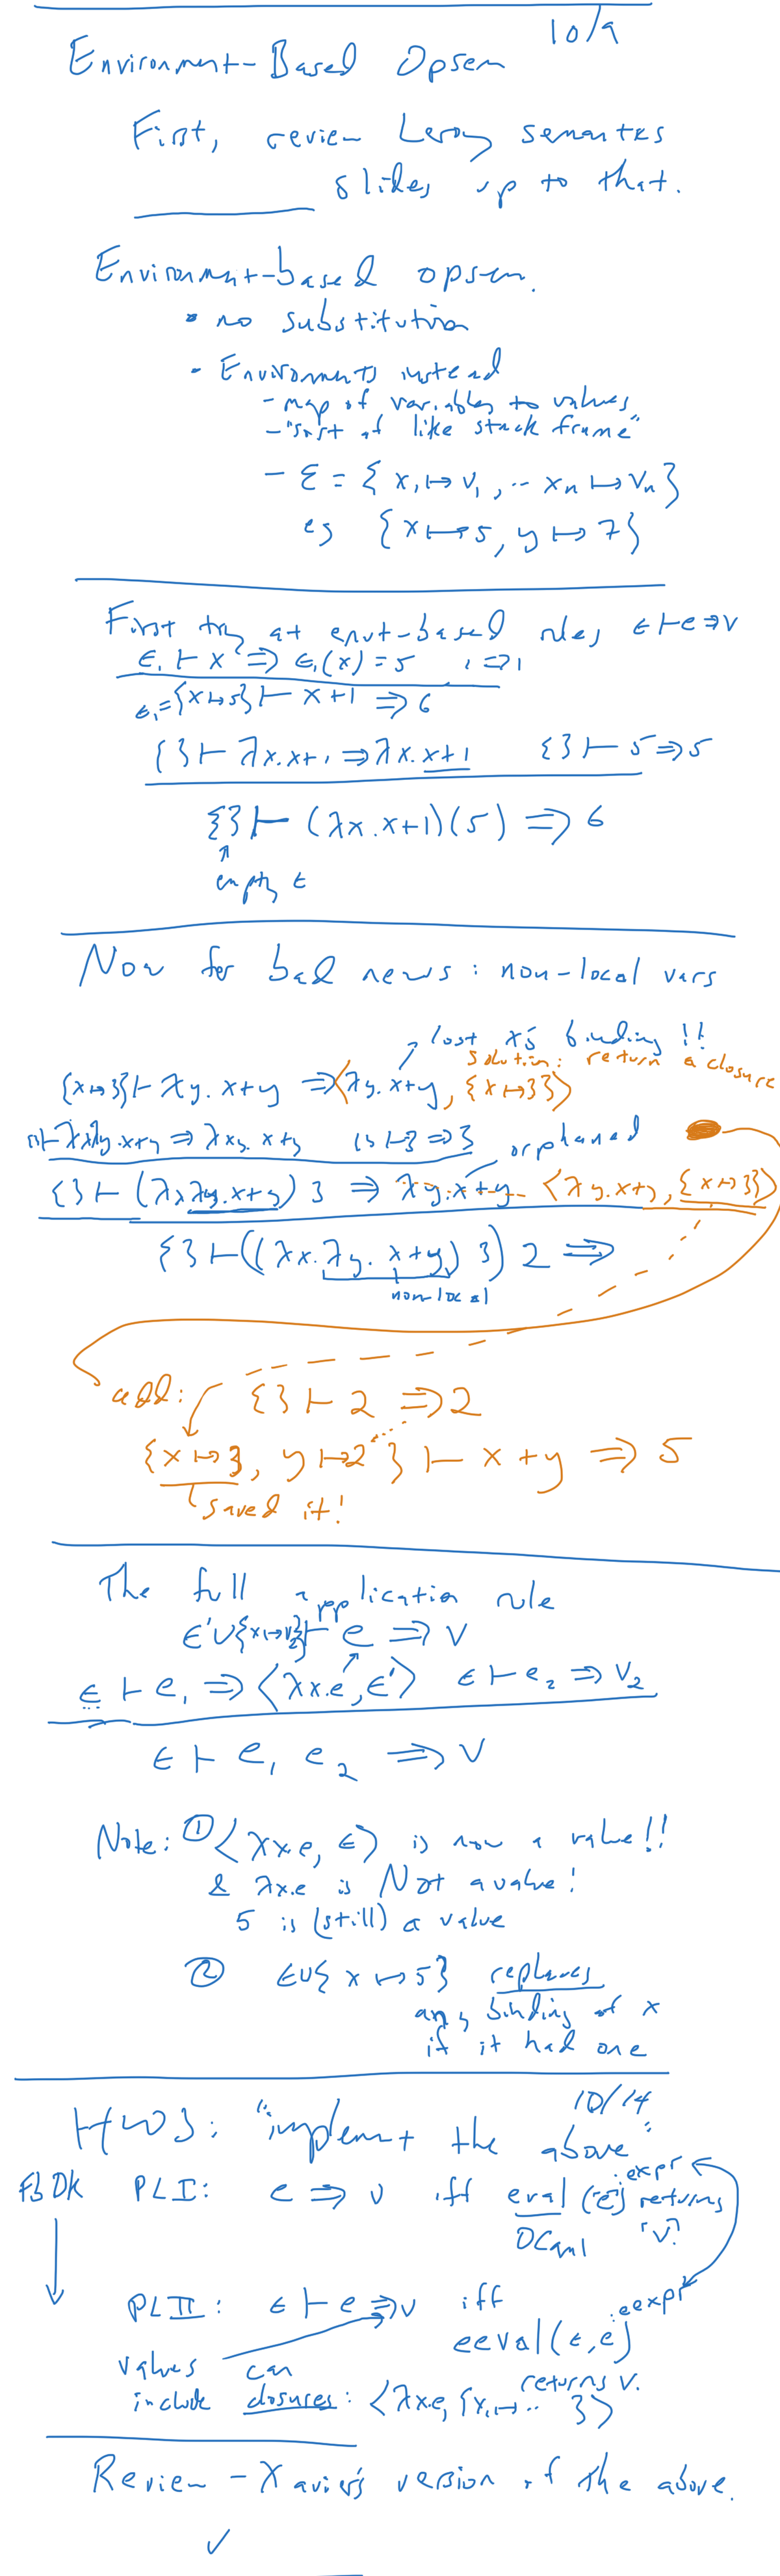 10/9
Environment-Based Opsem
First, review Leroy semantics
slides up to that.
Environment-based opsem.
• no substitution
• Environments instead
- map of variables to values
- "sort of like stack frame"
- ℰ = { x₁ ↦ v₁, ·· xₙ ↦ vₙ }
eg { x ↦ 5, y ↦ 7 }
First try at envt-based rules ϵ ⊢ e ⇒ v
ϵ₁ ⊢ x ⇒ ϵ₁(x) = 5 1 ⇒ 1
ϵ₁ = {x ↦ 5} ⊢ x + 1 ⇒ 6
{ } ⊢ λx.x+1 ⇒ λx.x+1 { } ⊢ 5 ⇒ 5
{ } ⊢ (λx.x+1)(5) ⇒ 6
↑
empty ϵ
Now for bad news: non-local vars
lost x's binding !!
solution: return a closure
{x ↦ 3} ⊢ λy. x+y ⇒ ⟨λy. x+y, {x ↦ 3}⟩
{} ⊢ λxλy.x+y ⇒ λxy. x+y {} ⊢ 3 ⇒ 3 orphaned
{ } ⊢ (λx λy.x+y) 3 ⇒ λy.x+y ⟨λy.x+y, {x ↦ 3}⟩
{ } ⊢ ((λx.λy. x+y) 3) 2 ⇒
non-local
add: { } ⊢ 2 ⇒ 2
{x ↦ 3, y ↦ 2 } ⊢ x + y ⇒ 5
saved it!
The full application rule
ϵ' ∪ {x ↦ v₂} ⊢ e ⇒ v
ϵ ⊢ e₁ ⇒ ⟨λx.e, ϵ'⟩ ϵ ⊢ e₂ ⇒ v₂
ϵ ⊢ e₁ e₂ ⇒ v
Note: ① ⟨λx.e, ϵ⟩ is now a value!!
& λx.e is Not a value!
5 is (still) a value
② ϵ ∪ { x ↦ 5} replaces
any binding of x
if it had one
10/14
HW3: "implement the above"
FbDK PLI: e ⇒ v iff eval ("e") returns
:expr
OCaml "v"
PLII: ϵ ⊢ e ⇒ v iff
:eexpr
eeval(ϵ, e)
values can returns v.
include closures: ⟨λx.e, {x₁ ↦ ·· }⟩
Review - Xavier's version of the above.
✓